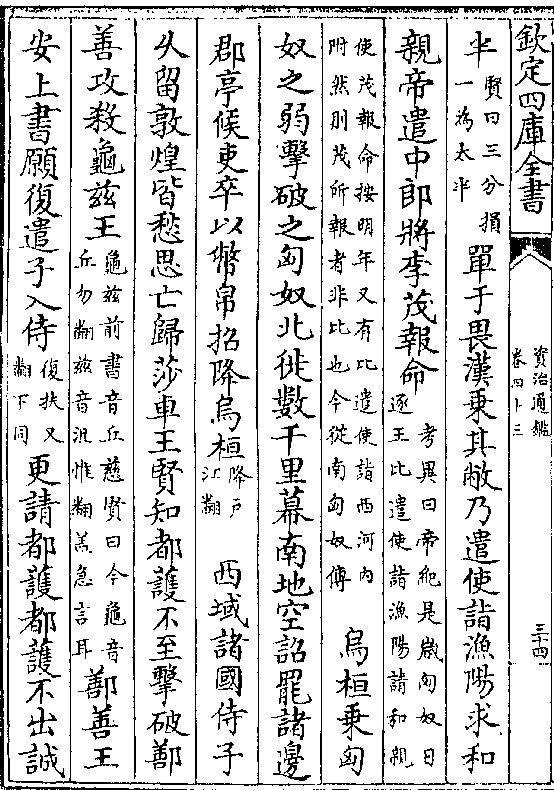 欽定四庫全書
資治通鑑
卷四十三
三十四
半
賢曰三分損
一為太半
單于畏漢乗其敝乃遣使詣漁陽求和
親帝遣中郎將李茂報命
考異曰帝紀是嵗匈奴日
逐王比遣使詣漁陽請和親
使茂報命按明年又有比遣使詣西河内
附然則茂所報者非比也今從南匈奴傳
烏桓乗匈
奴之弱擊破之匈奴北徙數千里幕南地空詔罷諸邊
郡亭候吏卒以幣帛招降烏桓
降户
江翻
西域諸國侍子
乆留敦煌皆愁思亡歸莎車王賢知都護不至擊破鄯
善攻殺龜兹王
龜兹前書音丘慈賢曰今龜音
丘勿翻兹音沮惟翻盖急言耳
鄯善王
安上書願復遣子入侍
復扶又
翻下同
更請都護都護不出誠